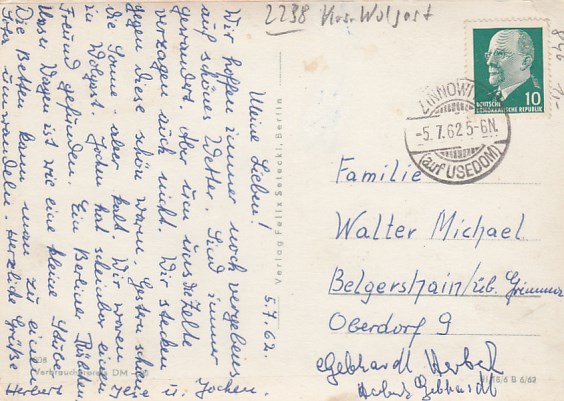 2238 Krs. Wolgast
5.7.62.
Meine Lieben!
Wir hoffen immer noch vergebens
auf schönes Wetter. Sind immer
gewandert. Aber um uns die Zelte
verzagen auch nicht. Wir stecken
gegen diese schön warm. Gestern schien
die Sonne, aber kalt. Wir waren
in Wolgast. Jochen hat scheinbar einen
Freund gefunden. Ein Berliner Bübchen.
Unser Wagen ist wie eine kleine Stube.
Die Betten kann man zu einem
Sofa umwandeln. Herzliche Grüße
Herbert u. Jochen.
Verlag Felix Setecki, Berlin
Verbraucherpreis DM
ZINNOWITZ
-5.7.62 5-6N.
(auf USEDOM)
DEUTSCHE
DEMOKRATISCHE REPUBLIK
10
Familie
Walter Michael
Belgershain/üb. Grimma
Oberdorf 9
Gebhardt Herbert
Herbert Gebhardt
III/18/6 B 6/62